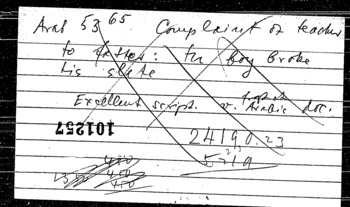 Arab 53 65 Complaint of teacher
to father: the boy broke
his slate
Excellent script. v. Arabic doc.
101257
24190.23
5719
450
450